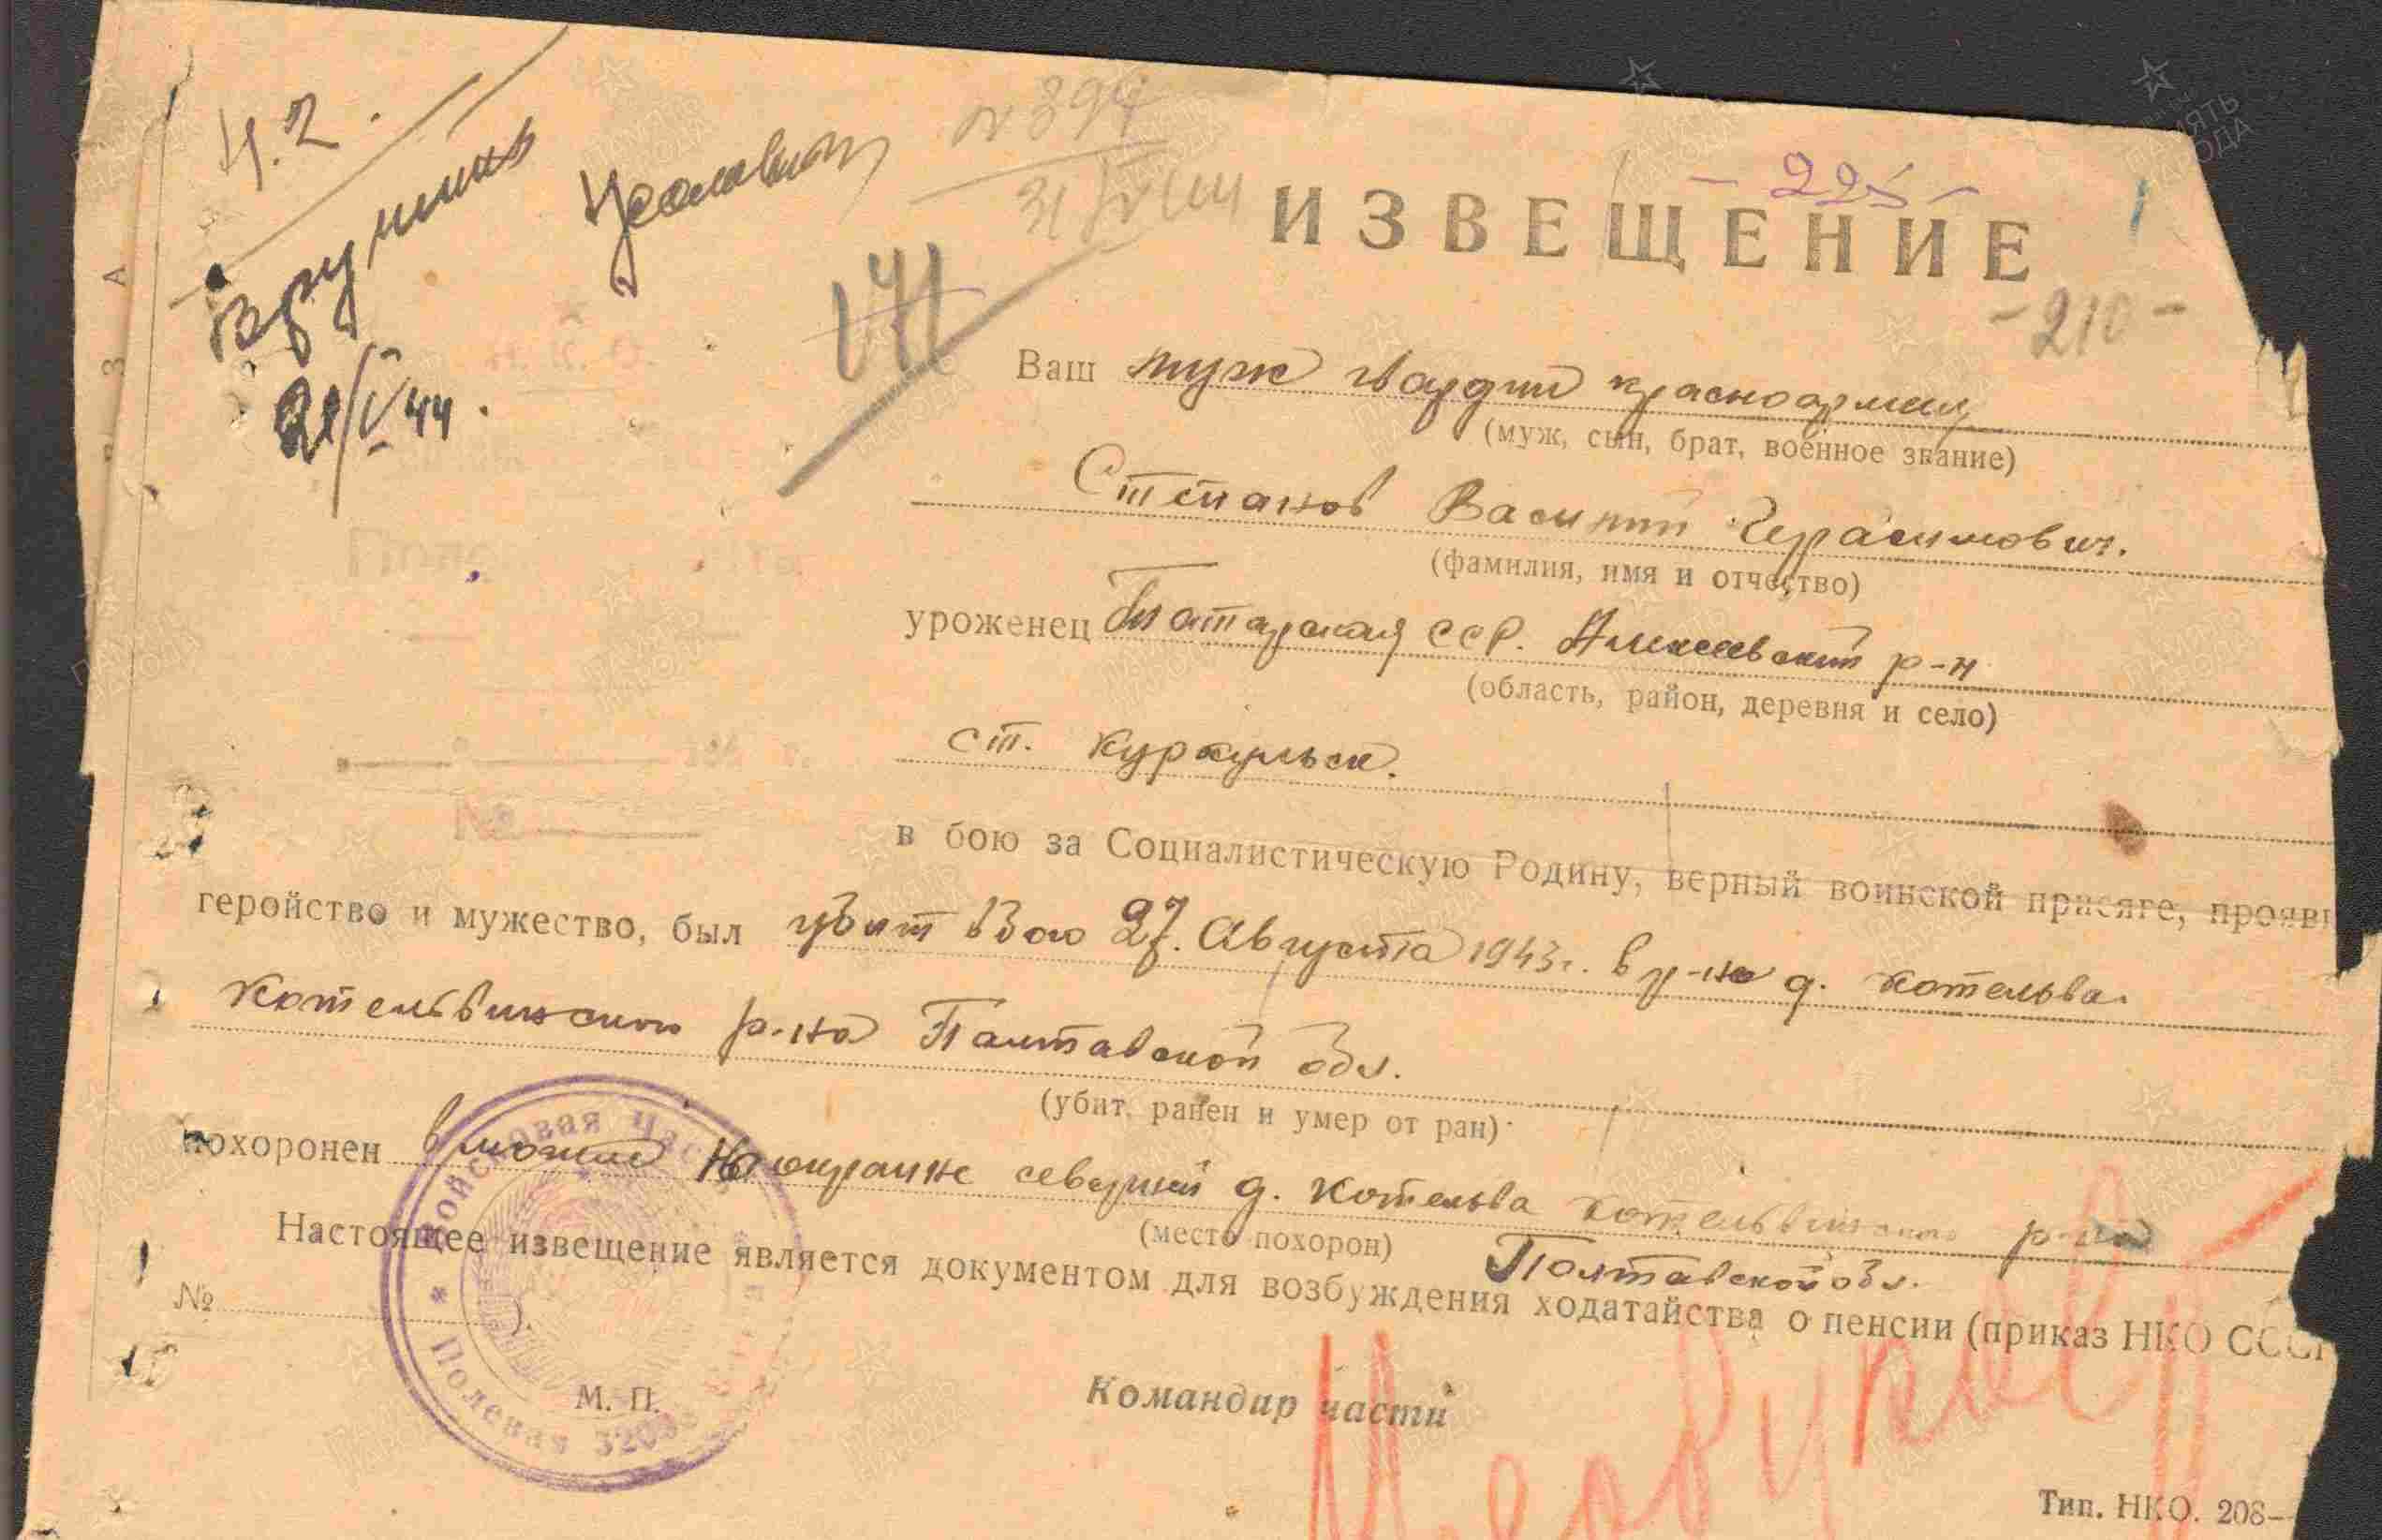 Ч.2.
Вручить
21/V 44.
№ 394
31/VIII
171
- 225 -
ИЗВЕЩЕНИЕ
- 210 -
Ваш муж гвардии красноармеец
(муж, сын, брат, военное звание)
Степанов Василий Герасимович.
(фамилия, имя и отчество)
уроженец Татарская ССР. Алексеевский р-н
(область, район, деревня и село)
ст. Куркульск.
в бою за Социалистическую Родину, верный воинской присяге, прояви
геройство и мужество, был убит в бою 27. Августа 1943 г. в р-не д. Котельва.
Котельвинского р-на Палтавской обл.
(убит, ранен и умер от ран)
похоронен в могиле на окраине северней д. Котельва Котельвинского р-на
(место похорон) Полтавской обл.
Настоящее извещение является документом для возбуждения ходатайства о пенсии (приказ НКО СССР
№ ).
Войсковая часть
Полевая
М. П.
Командир части
Тип. НКО. 208-